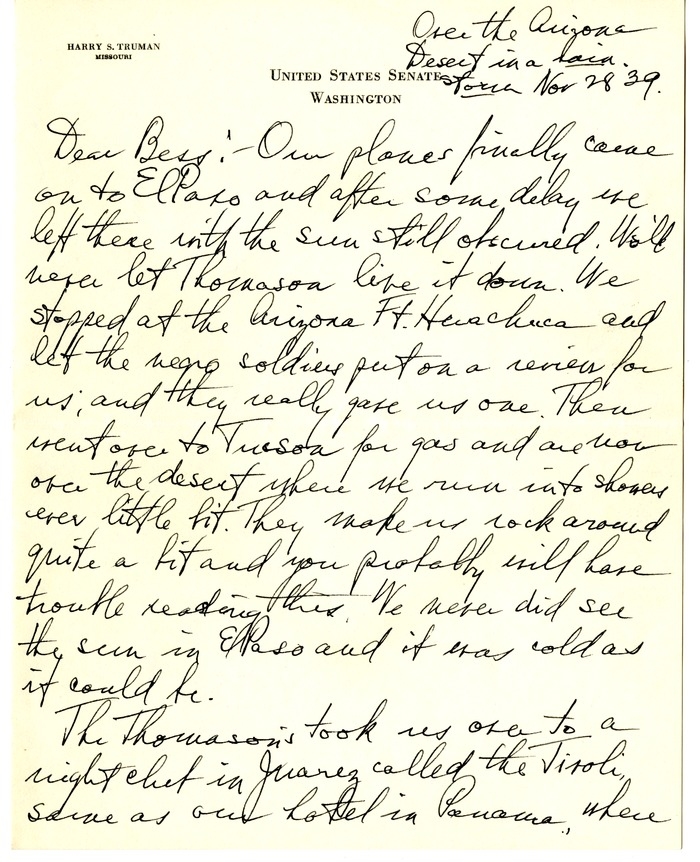 HARRY S. TRUMAN
MISSOURI
UNITED STATES SENATE
WASHINGTON
Over the Arizona
Desert in a rain.
storm Nov 28 39.
Dear Bess:- Our planes finally came
on to El Paso and after some delay we
left there with the sun still obscured. We'll
never let Thomason live it down. We
stopped at the Arizona Ft. Huachuca and
let the negro soldiers put on a review for
us, and they really gave us one. Then
went over to Tucson for gas and are now
over the desert where we run into showers
ever little bit. They make us rock around
quite a bit and you probably will have
trouble reading this. We never did see
the sun in El Paso and it was cold as
it could be.
The Thomason's took us over to a
night club in Juarez called the Tivoli,
same as our hotel in Panama, where